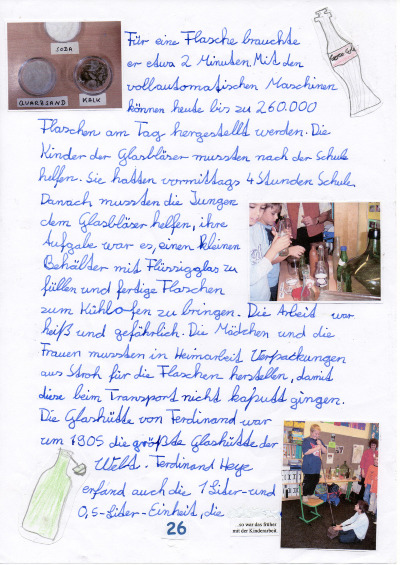 SODA
QUARZSAND
KALK
Für eine Flasche brauchte
er etwa 2 Minuten. Mit den
vollautomatischen Maschinen
können heute bis zu 260.000
Flaschen am Tag hergestellt werden. Die
Kinder der Glasbläser mussten nach der Schule
helfen. Sie hatten vormittags 4 Stunden Schule.
Danach mussten die Jungen
dem Glasbläser helfen, ihre
Aufgabe war es, einen kleinen
Behälter mit Flüssigglas zu
füllen und fertige Flaschen
zum Kühlofen zu bringen. Die Arbeit war
heiß und gefährlich. Die Mädchen und die
Frauen mussten in Heimarbeit Verpackungen
aus Stroh für die Flaschen herstellen, damit
diese beim Transport nicht kaputt gingen.
Die Glashütte von Ferdinand war
um 1905 die größte Glashütte der
Welt. Ferdinand Heye
erfand auch die 1 Liter- und
0,5-Liter-Einheit, die
so war das früher
mit der Kinderarbeit
26